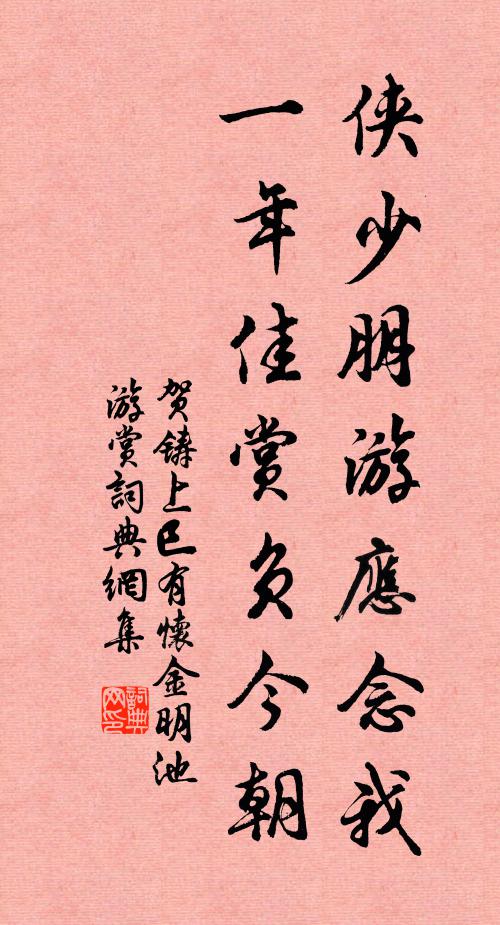 侠少朋游應念我
一年佳賞负今朝
贺鑄上巳有懷金明池
游赏詞典網集
詞典
网印